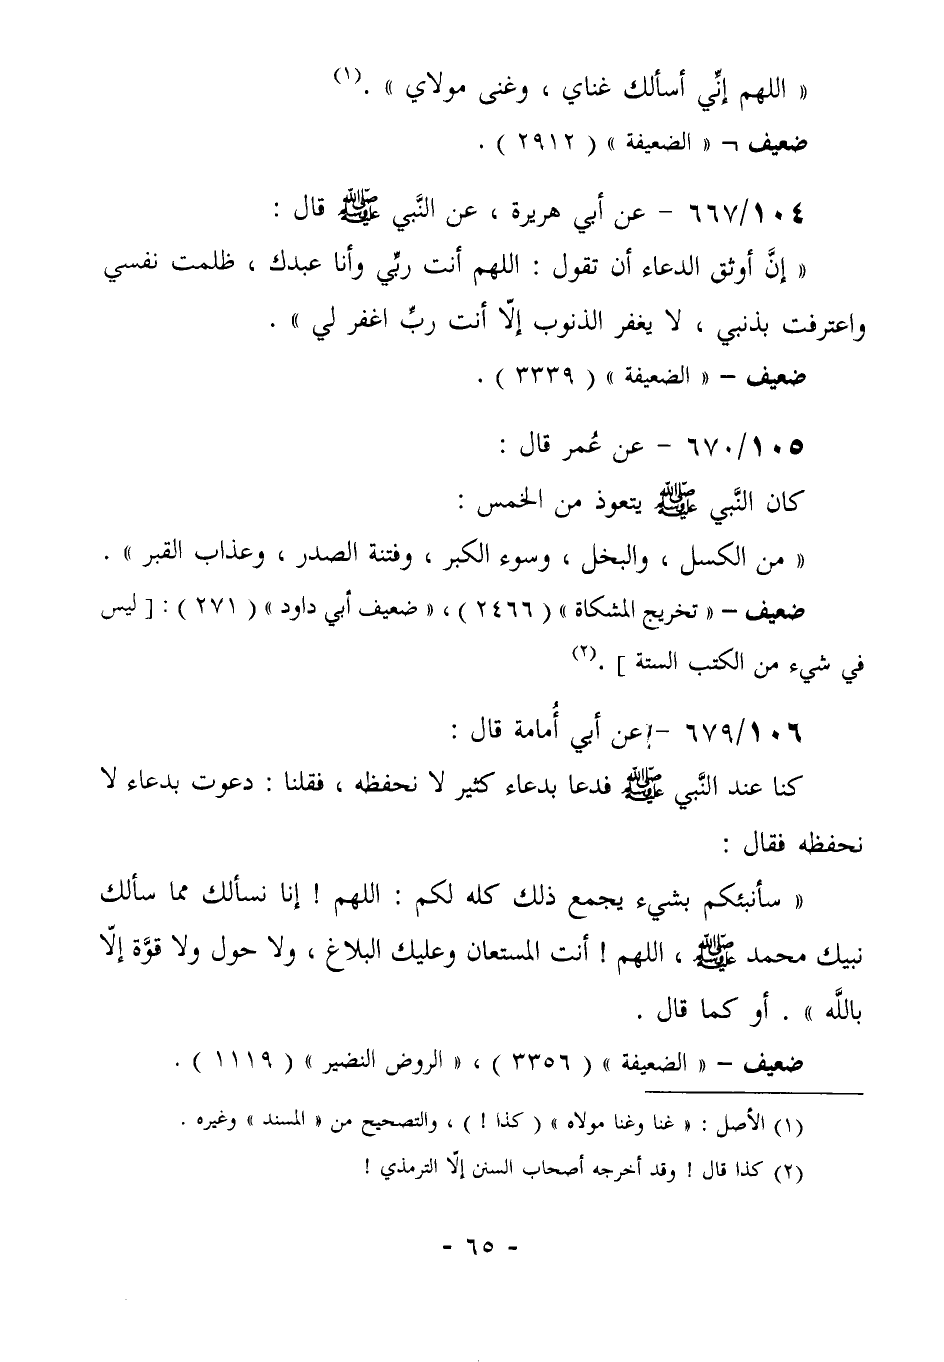 « اللهم إنِّي أسألك غناي ، وغنى مولاي » .(١)
ضعيف ¬ « الضعيفة » ( ٢٩١٢ ) .
٦٦٧/١٠٤ – عن أبي هريرة ، عن النَّبي ﷺ قال :
« إنَّ أوثق الدعاء أن تقول : اللهم أنت ربِّي وأنا عبدك ، ظلمت نفسي
واعترفت بذنبي ، لا يغفر الذنوب إلّا أنت ربِّ اغفر لي » .
ضعيف – « الضعيفة » ( ٣٣٣٩ ) .
٦٧٠/١٠٥ – عن عُمر قال :
كان النَّبي ﷺ يتعوذ من الخمس :
« من الكسل ، والبخل ، وسوء الكبر ، وفتنة الصدر ، وعذاب القبر » .
ضعيف – « تخريج المشكاة » ( ٢٤٦٦ ) ، « ضعيف أبي داود » ( ٢٧١ ) : [ ليس
في شيء من الكتب الستة ] .(٢)
٦٧٩/١٠٦ – عن أبي أُمامة قال :
كنا عند النَّبي ﷺ فدعا بدعاء كثير لا نحفظه ، فقلنا : دعوت بدعاء لا
نحفظه فقال :
« سأنبئكم بشيء يجمع ذلك كله لكم : اللهم ! إنا نسألك مما سألك
نبيك محمد ﷺ ، اللهم ! أنت المستعان وعليك البلاغ ، ولا حول ولا قوَّة إلّا
باللَّه » . أو كما قال .
ضعيف – « الضعيفة » ( ٣٣٥٦ ) ، « الروض النضير » ( ١١١٩ ) .
(١) الأصل : « غنا وغنا مولاه » ( كذا ! ) ، والتصحيح من « المسند » وغيره .
(٢) كذا قال ! وقد أخرجه أصحاب السنن إلّا الترمذي !
- ٦٥ -